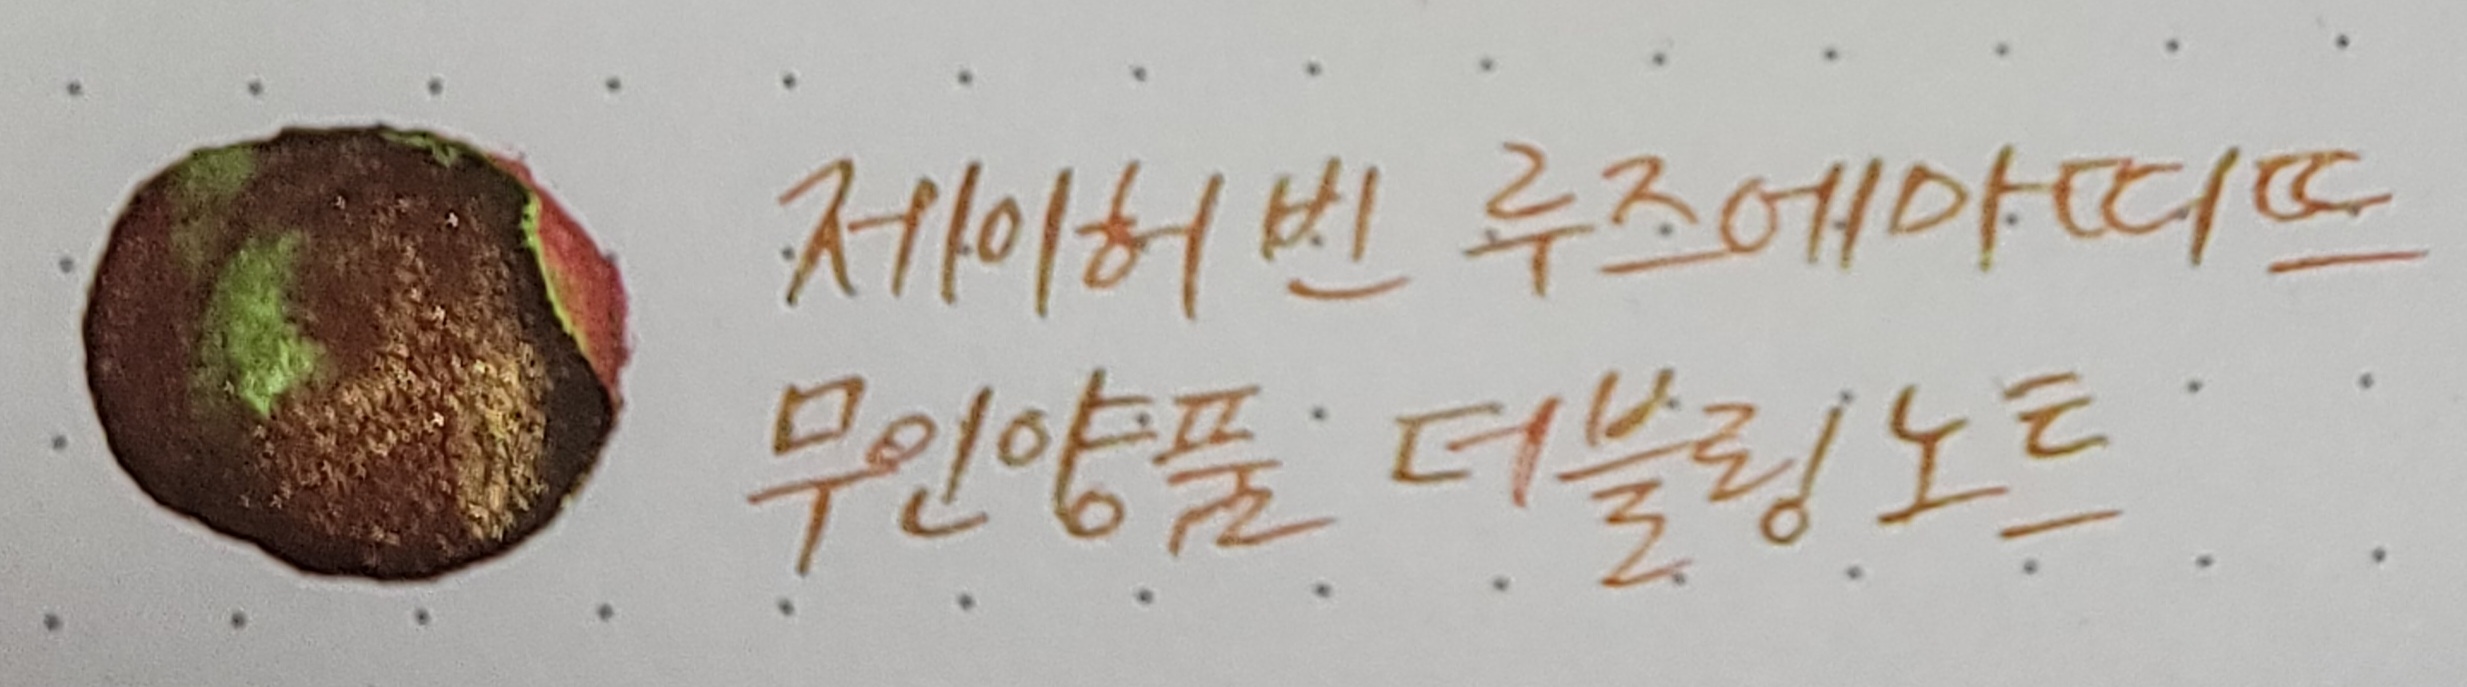 제이허빈 루즈에마띠뜨
무인양품 더블링노트